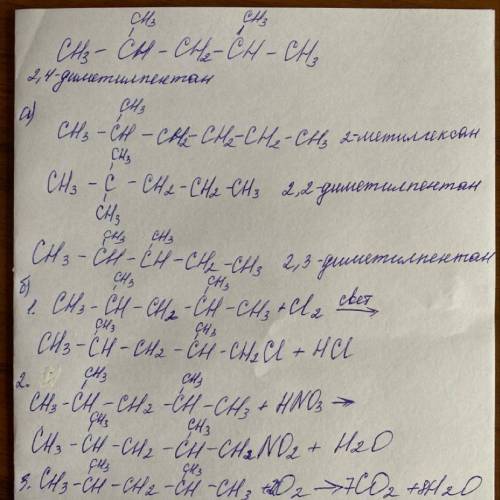 CH3 CH3
CH3 – CH – CH2 – CH – CH3
2,4-диметилпентан
а)
CH3
CH3 – CH – CH2 – CH2 – CH2 – CH3 2-метилгексан
CH3
CH3 – C – CH2 – CH2 – CH3 2,2-диметилпентан
CH3
CH3 CH3
CH3 – CH – CH – CH2 – CH3 2,3-диметилпентан
б)
CH3 CH3
1. CH3 – CH – CH2 – CH – CH3 + Cl2 свет →
CH3 CH3
CH3 – CH – CH2 – CH – CH2Cl + HCl
2.
CH3 CH3
CH3 – CH – CH2 – CH – CH3 + HNO3 →
CH3 CH3
CH3 – CH – CH2 – CH – CH2NO2 + H2O
CH3 CH3
3. CH3 – CH – CH2 – CH – CH3 + O2 → 7CO2 + 8H2O